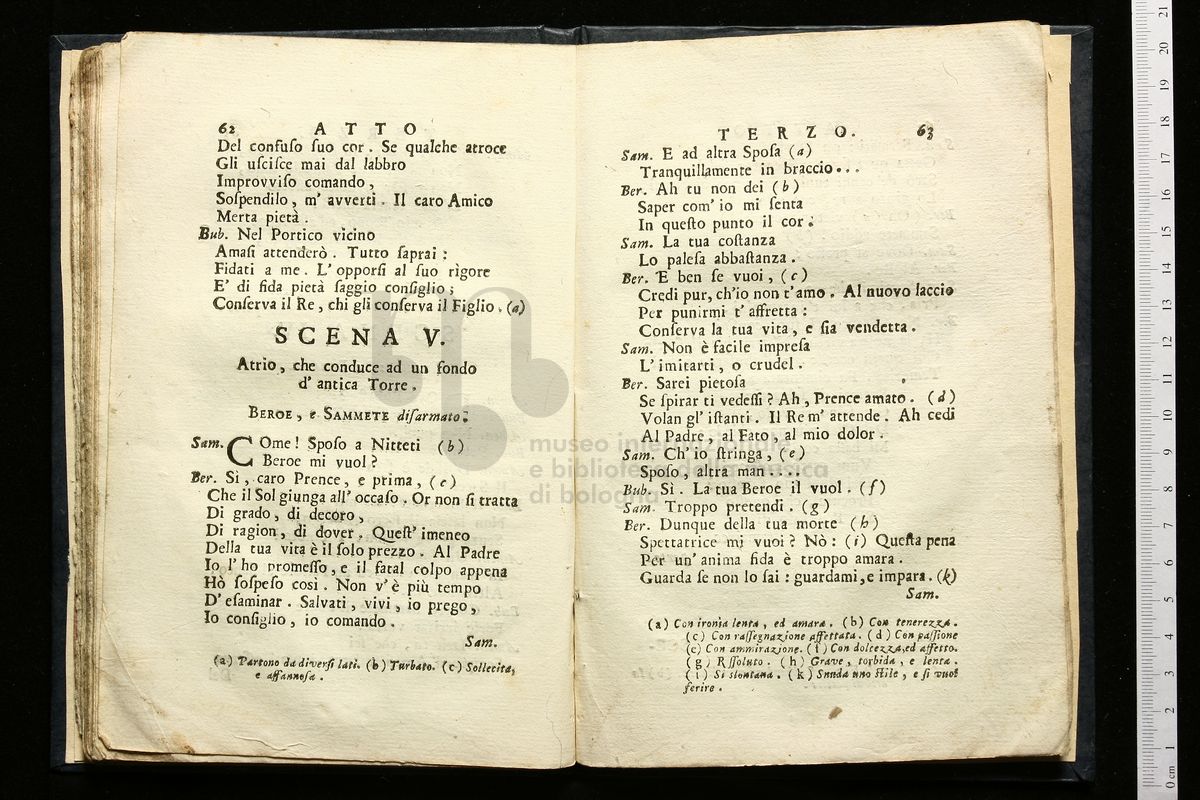 62 ATTO
Del confuſo ſuo cor. Se qualche atroce
Gli uſciſce mai dal labbro
Improvviſo comando,
Soſpendilo, m' avverti. Il caro Amico
Merta pietà.
Bub. Nel Portico vicino
Amaſi attenderò. Tutto ſaprai:
Fidati a me. L' opporſi al ſuo rìgore
E' di fida pietà ſaggio conſiglio;
Conſerva il Re, chi gli conſerva il Figlio. (a)
SCENA V.
Atrio, che conduce ad un fondo
d' antica Torre.
BEROE, e SAMMETE diſarmato.
Sam. COme! Spoſo a Nitteti (b)
Beroe mi vuol?
Ber. Si, caro Prence, e prima, (c)
Che il Sol giunga all' occaſo. Or non ſi tratta
Di grado, di decoro,
Di ragion, di dover. Queſt' imeneo
Della tua vita è il ſolo prezzo. Al Padre
Io l' ho promeſſo, e il fatal colpo appena
Hò ſoſpeſo così. Non v' è più tempo
D' eſaminar. Salvati, vivi, io prego,
Io conſiglio, io comando.
Sam.
(a) Partono da diverſi lati. (b) Turbato. (c) Sollecita,
e affannoſa.
TERZO. 63
Sam. E ad altra Spoſa (a)
Tranquillamente in braccio...
Ber. Ah tu non dei (b)
Saper com' io mi ſenta
In queſto punto il cor.
Sam. La tua coſtanza
Lo paleſa abbaſtanza.
Ber. E ben ſe vuoi, (c)
Credi pur, ch'io non t'amo. Al nuovo laccio
Per punirmi t' affretta:
Conſerva la tua vita, e ſia vendetta.
Sam. Non è facile impreſa
L' imitarti, o crudel.
Ber. Sarei pietoſa
Se ſpirar ti vedeſſi? Ah, Prence amato. (d)
Volan gl' iſtanti. Il Re m' attende. Ah cedi
Al Padre, al Fato, al mio dolor.
Sam. Ch' io ſtringa, (e)
Spoſo, altra man.....
Bub. Si. La tua Beroe il vuol. (f)
Sam. Troppo pretendi. (g)
Ber. Dunque della tua morte (h)
Spettatrice mi vuoi? Nò: (i) Queſta pena
Per un' anima fida è troppo amara.
Guarda ſe non lo ſai: guardami, e impara. (k)
Sam.
(a) Con ironia lenta, ed amara. (b) Con tenerezza.
(c) Con raſſegnazione affettata. (d) Con paſſione
(e) Con ammirazione. (f) Con dolcezza, ed affetto.
(g) Rſſoluto. (h) Grave, torbida, e lenta.
(i) Si slontana. (k) Snuda uno ſtile, e ſi vuol
ferire.
museo internazionale
e biblioteca della musica
di bologna